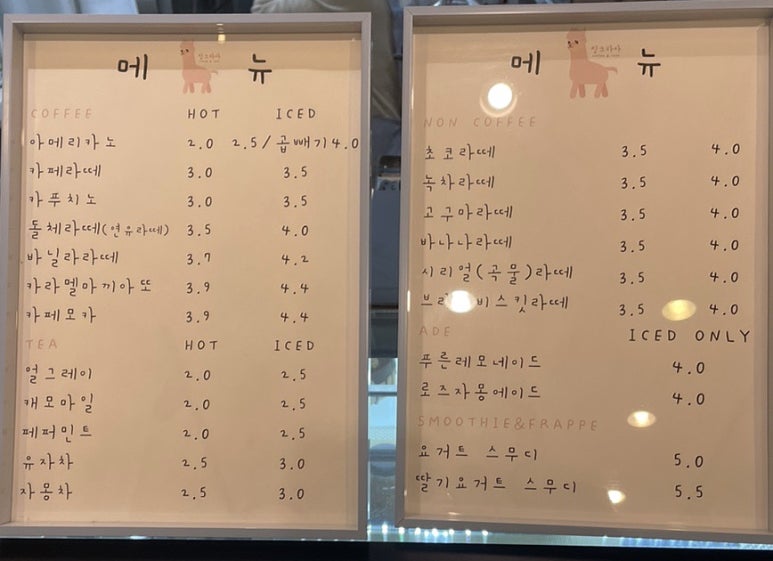 메 뉴
COFFEE HOT ICED
아메리카노 2.0 2.5/곱빼기4.0
카페라떼 3.0 3.5
카푸치노 3.0 3.5
돌체라떼(연유라떼) 3.5 4.0
바닐라라떼 3.7 4.2
카라멜마끼아또 3.9 4.4
카페모카 3.9 4.4
TEA HOT ICED
얼그레이 2.0 2.5
캐모마일 2.0 2.5
페퍼민트 2.0 2.5
유자차 2.5 3.0
자몽차 2.5 3.0
메 뉴
NON COFFEE
초코라떼 3.5 4.0
녹차라떼 3.5 4.0
고구마라떼 3.5 4.0
바나나라떼 3.5 4.0
시리얼(곡물)라떼 3.5 4.0
비스킷라떼 3.5 4.0
ADE ICED ONLY
푸른레모네이드 4.0
로즈자몽에이드 4.0
SMOOTHIE&FRAPPE
요거트 스무디 5.0
딸기요거트 스무디 5.5